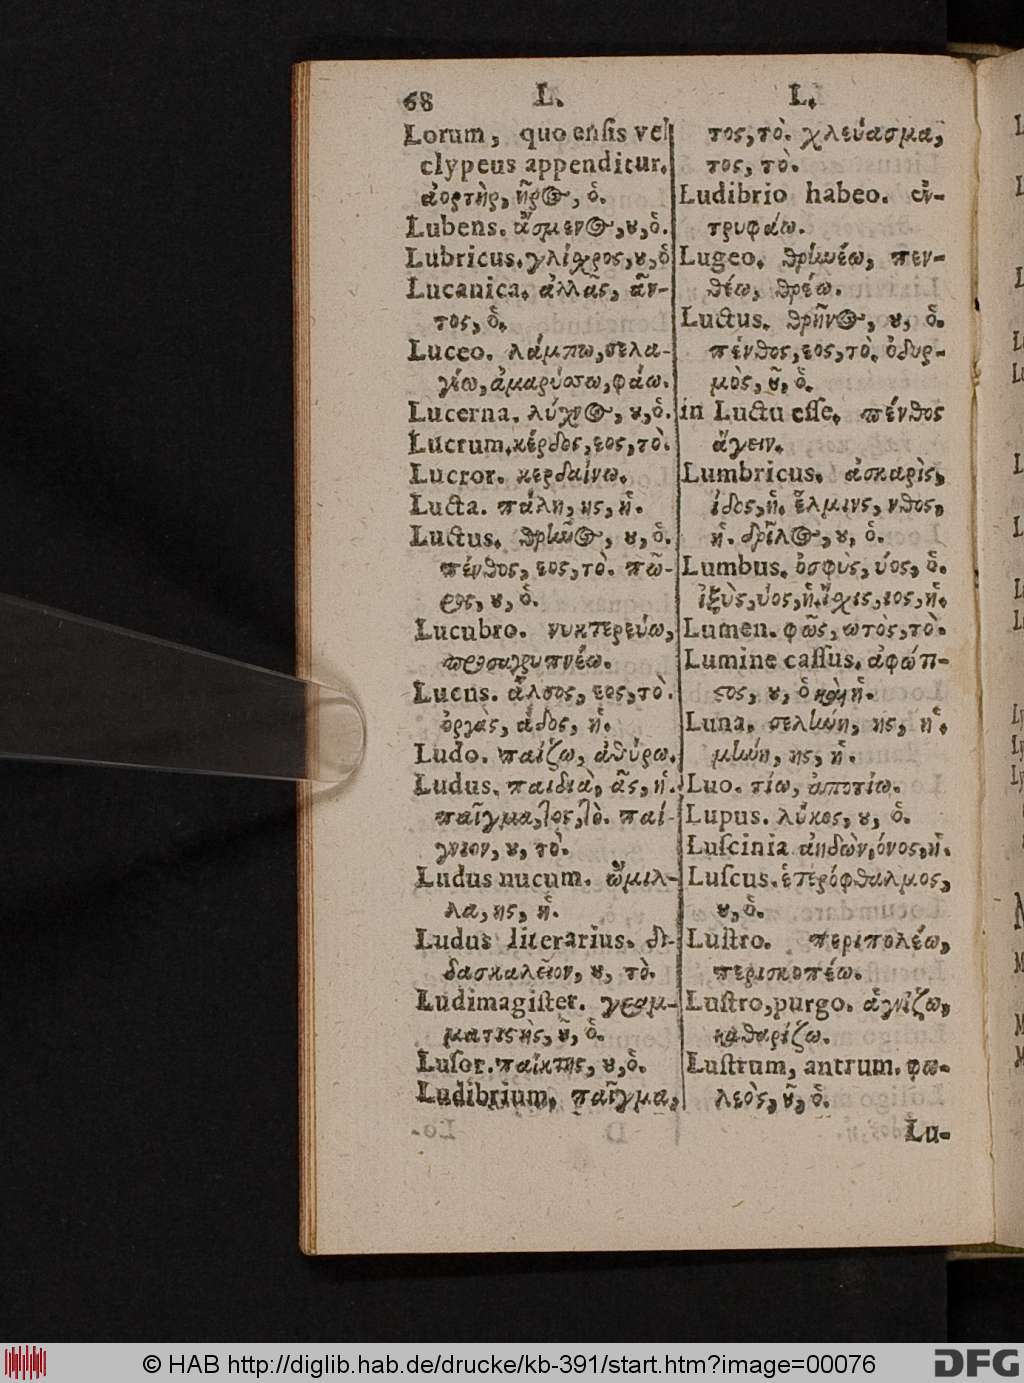 68 L. L.
Lorum, quo ensis vel
clypeus appenditur.
ἀορτὴρ, ῆρος, ὁ.
Lubens. ἄσμενος, ου, ὁ.
Lubricus. γλίσχρος, ου, ὁ
Lucanica. ἀλλᾶς, ᾶν-
τος, ὁ.
Luceo. λάμπω, σελα-
γέω, ἀμαρύσσω, φάω.
Lucerna. λύχνος, ου, ὁ.
Lucrum. κέρδος, εος, τὸ.
Lucror. κερδαίνω.
Lucta. πάλη, ης, ἡ.
Luctus. θρῆνος, ου, ὁ.
πένθος, εος, τὸ. πῶ-
ρος, ου, ὁ.
Lucubro. νυκτερεύω,
προσαγρυπνέω.
Lucus. ἄλσος, εος, τὸ.
ὀργὰς, άδος, ἡ.
Ludo. παίζω, ἀθύρω.
Ludus. παιδιὰ, ᾶς, ἡ.
παῖγμα, τος, τὸ. παί-
γνιον, ου, τὸ.
Ludus nucum. ὤμιλ-
λα, ης, ἡ.
Ludus literarius. δι-
δασκαλεῖον, ου, τὸ.
Ludimagister. γραμ-
ματιστὴς, οῦ, ὁ.
Lusor. παίκτης, ου, ὁ.
Ludibrium. παῖγμα,
τος, τὸ. χλεύασμα,
τος, τὸ.
Ludibrio habeo. ἐν-
τρυφάω.
Lugeo. θρηνέω, πεν-
θέω, θρέω.
Luctus. θρῆνος, ου, ὁ.
πένθος, εος, τὸ. ὀδυρ-
μὸς, οῦ, ὁ.
in Luctu esse. πένθος
ἄγειν.
Lumbricus. ἀσκαρὶς,
ίδος, ἡ. ἕλμινς, νθος,
ἡ. δρῖλος, ου, ὁ.
Lumbus. ὀσφὺς, ύος, ὁ.
ἰξὺς, ύος, ἡ. ἴσχις, ιος, ἡ.
Lumen. φῶς, ωτὸς, τὸ.
Lumine cassus. ἀφώτισ-
τος, ου, ὁ καὶ ἡ.
Luna. σελήνη, ης, ἡ.
μήνη, ης, ἡ.
Luo. τίω, ἀποτίω.
Lupus. λύκος, ου, ὁ.
Luscinia ἀηδὼν, όνος, ἡ.
Luscus. ἑτερόφθαλμος,
ου, ὁ.
Lustro. περιπολέω,
περισκοπέω.
Lustro, purgo. ἁγνίζω,
καθαρίζω.
Lustrum, antrum. φω-
λεὸς, οῦ, ὁ.
Lu-
© HAB http://diglib.hab.de/drucke/kb-391/start.htm?image=00076
DFG